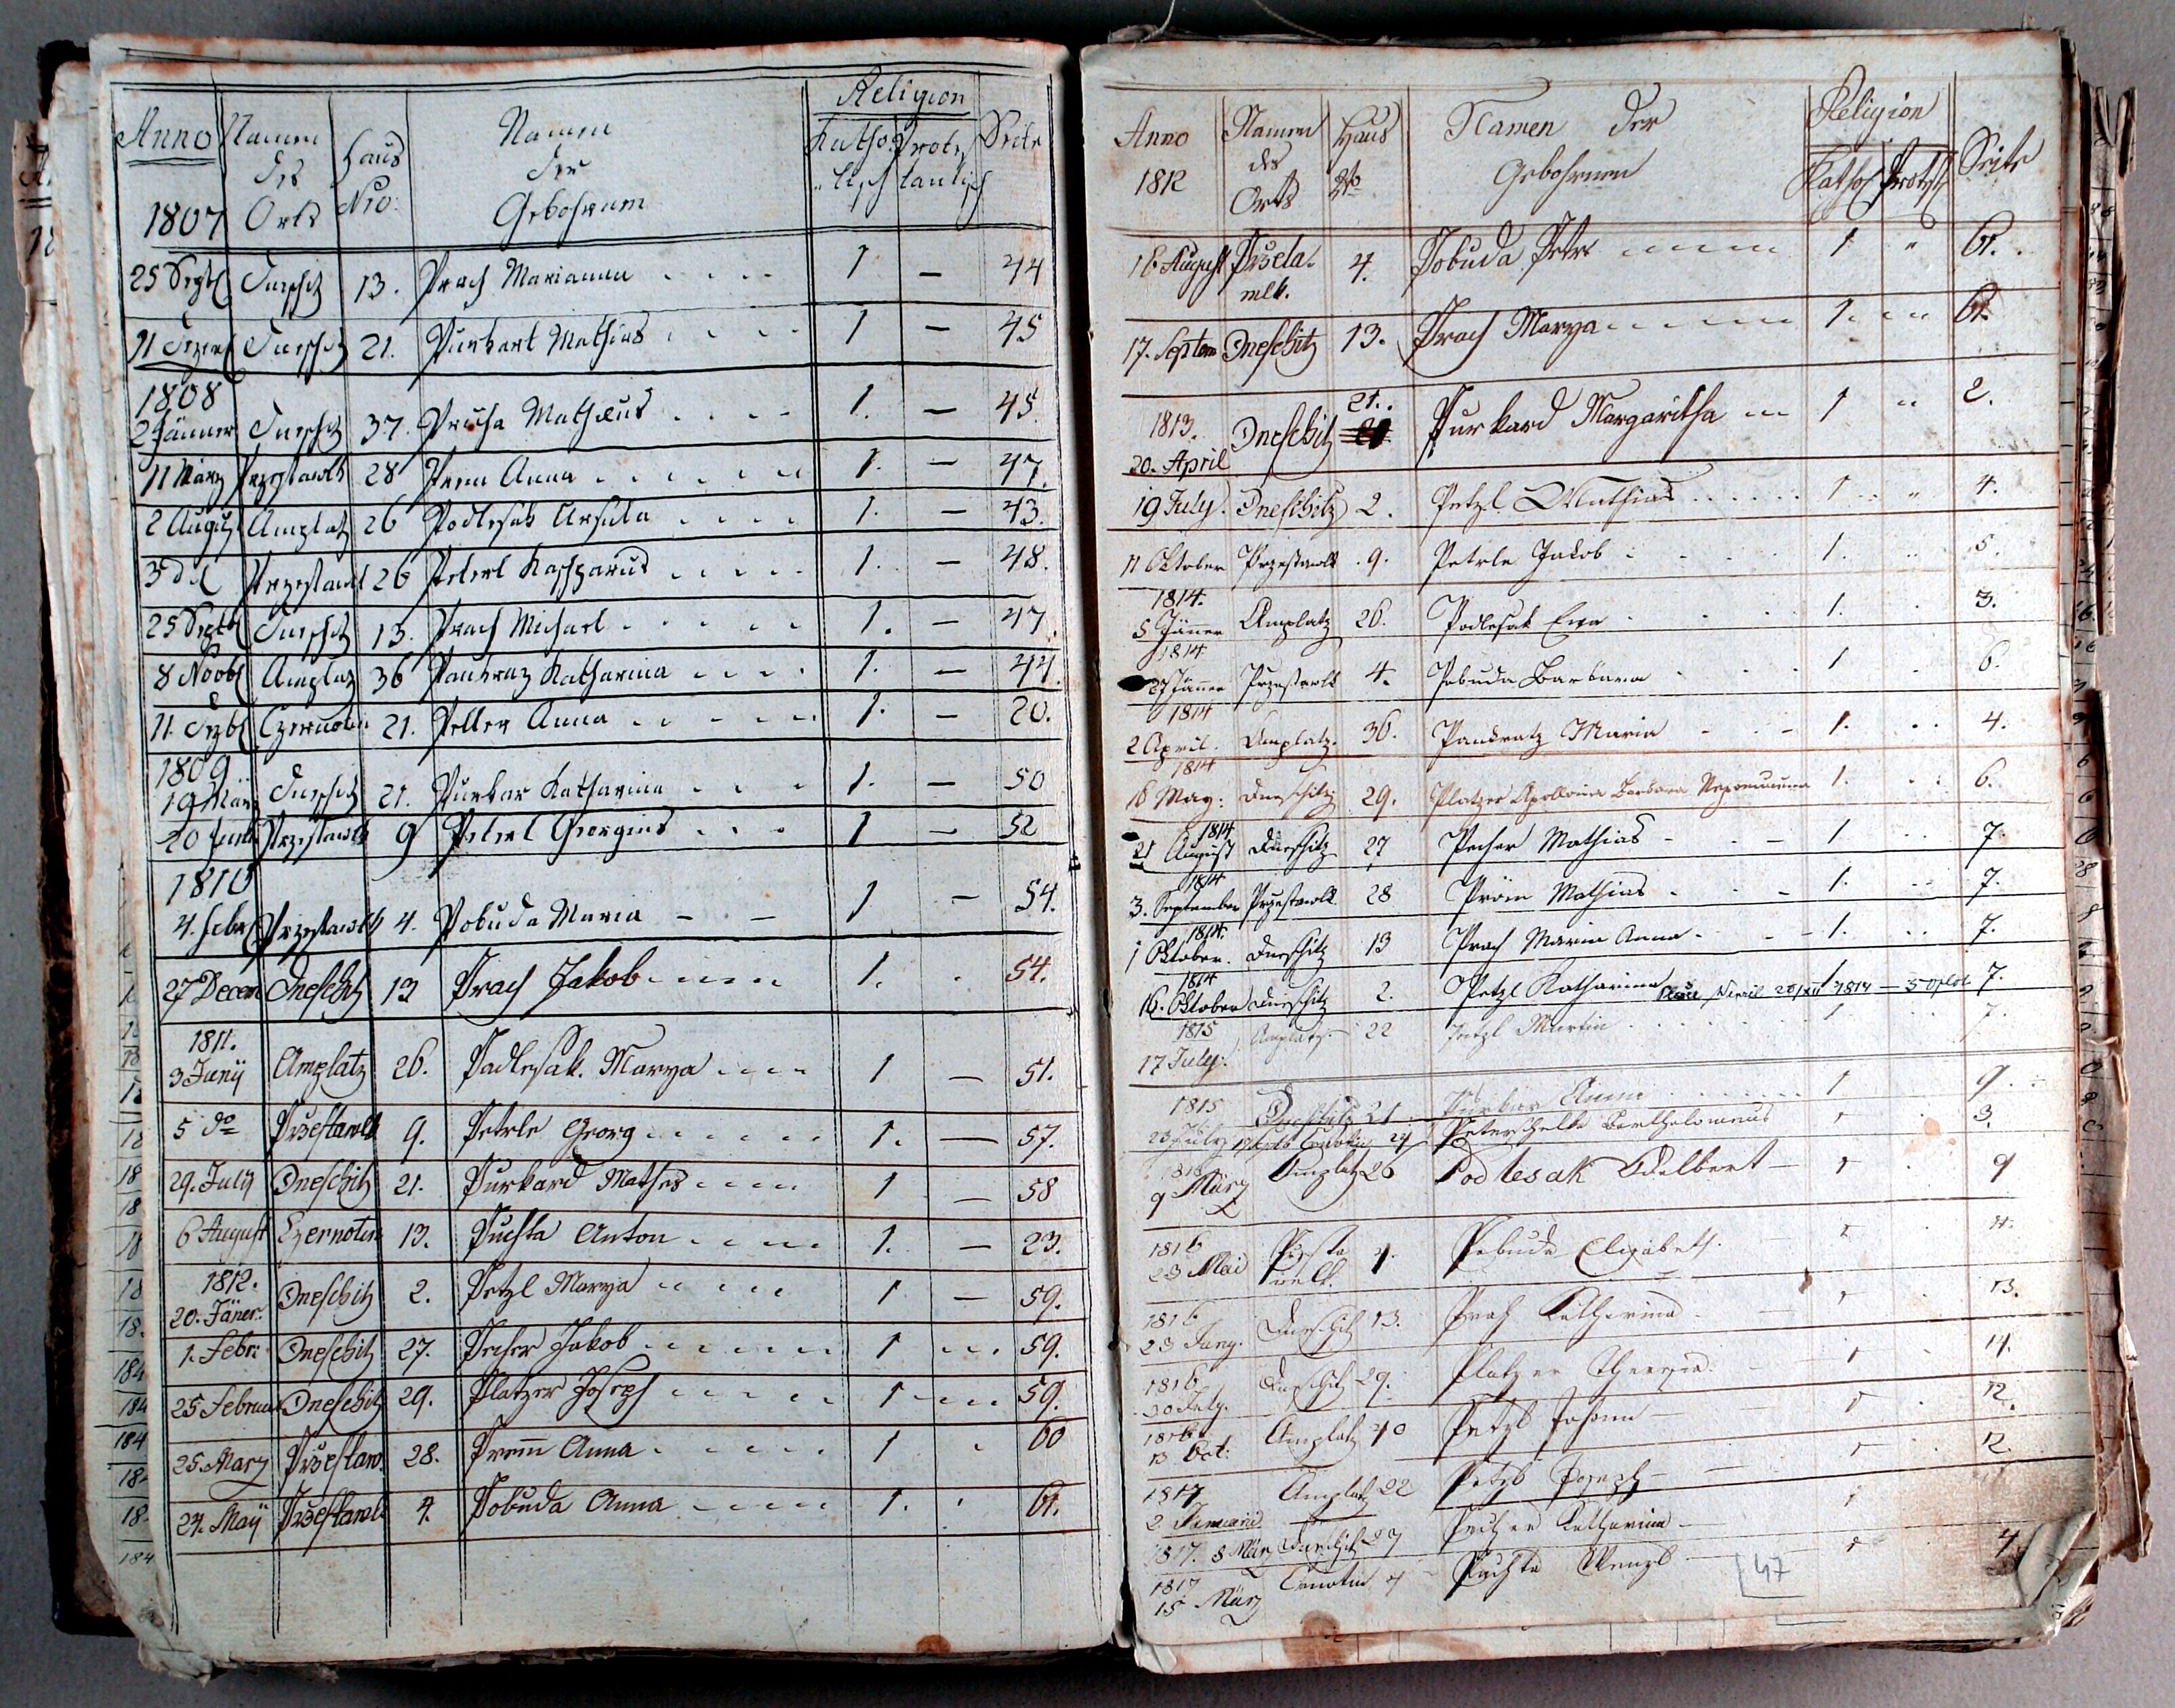 Anno Namen des Orts Haus Nro: Namen der Gebohrnen Religion Katho„lisch Protestantisch Seite
1807
25 Septb Dneschitz 13. Prach Marianna 1 — 44
11 Dezem Dneschitz 21. Purkart Mathias 1 — 45
1808
2 Jänner Dneschitz 37. Prucha Mathæus 1. — 45
11 März Przestawlk 28 Prem Anna 1. — 47.
2 August Amplatz 26 Podlesak Ursula 1. — 43.
3 d Przestawlk 26 Peterl Kasparus 1. — 48.
25 Septb Dneschitz 13. Prach Michael 1. — 47.
8 Novb Amplatz 36 Pankraz Katharina 1. — 44.
11. Dezb Czernotin 21. Peller Anna 1. — 20.
1809
19 März Dneschitz 21. Purkar Katharina 1. — 50
20 Przestawlk 9 Peterl Georgius 1 — 52
1810
4. Febr Przestawlk 4. Pobuda Maria — — 1 — 54.
27 Decem Dneschitz 13 Prach Jakob 1. . 54.
1811.
3 Juny Amplatz 26. Padlesak. Marya 1 — 51.
5 do Przestawlk 9. Petrle Georg 1. — 57.
29. July Dneschitz 21. Purkard Mathes 1 — 58
6 August Czernotin 13. Puchta Anton 1. — 23.
1812.
20. Jäner. Dneschitz 2. Petzl Marya 1 — 59.
1. Febr: Dneschitz 27. Pecher Jakob 1 59.
25 Februar Dneschitz 29. Platzer Joseph 1 59.
25. Marz Przestaw. 28. Prem̅ Anna 1 60
24. Maÿ Przestawlk 4. Pobuda Anna 1. 61.
Anno 1812 Namen des Orts Haus No Namen der Gebohrnen Religion Kathol Protest Seite
16 August Przestamlk. 4. Pobuda Peter 1 " 61.
17. Septem Dneschitz 13. Prach Marya 1. 61.
1813.
20. April Dneschitz 21. Purkard Margaritha 1 " 2.
19 July. Dneschitz 2. Petzl Mathias 1 " 4.
11 Oktober Przestawlk 9. Petrle Jakob 1. 5
1814.
5 Jänner Amplatz 26. Podlesak Eva 1. 3.
1814
27 Jänner Przestawlk 4. Pobuda Barbara 1 6.
1814
2 April. Amplatz. 36. Pankratz Maria 1. 4.
1814
16 May: Dneschitz 29. Platzer Apollonia Barbara Nepomucena 1. 6.
1814
21 August Dneschitz 27 Pecher Mathias 1. 7.
1814
3. September Przestawlk 28 Pröm Mathias 1. 7.
1814.
1 Oktober. Dneschitz 13 Prach Maria Anna 1. 7.
1814
16. Oktober Dneschitz 2. Petzl Katharina 1 7.
1815
17 July. Amplatz 22 Petzl Martin 1 7.
1815
23 July Dneschitz 21 Purkar Anna 1 9.
24 Peterschelka Bartholomeus 1 3.
1816
9 März Amplatz 26 Podlesak Adelbert 1 9
1816
23 Mai Przestawlk. 4. Pobuda Elisabeth 1 11.
1816
23 Juny. Dneschitz 13. Prach Katharina 1 13.
1816
30 July. Dneschitz 29. Platzer Theresia 1 14.
1816
13 Oct. Amplatz 40 Petzl Johann 1 12.
1817
2 Januari Amplatz 22 Petzl Joseph 1 12.
1817. 8 März Dneschitz 27 Pecher Katharina 1
1817
15 März Cernotin 4 Puchta Wenzl 1 4.
47